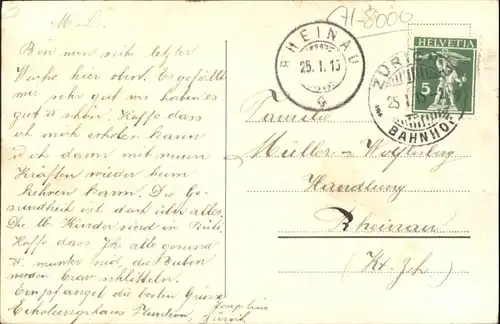 M. L.
Bin nun seit letzter
Woche hier oben. Es gefällt
mir sehr gut wir haben es
gut & schön. Hoffe dass
ich mich erholen kann
dass ich dann mit neuen
Kräften wieder heim
kehren kann. Die Ge-
sundheit ist doch über alles.
Die lb. Kinder sind in
Hoffe dass Ihr alle gesund
& munter seid, die Buben
werden schlitteln.
Empfanget die besten Grüsse
Josephine
Erholungshaus Fluntern, Zürich
A-8000
RHEINAU
25. I. 15
9
ZÜRICH
25. I. 15
BAHNHOF
HELVETIA
5
Familie
Müller-Wolfisberg
Handlung
Rheinau
(Kt. Zch)